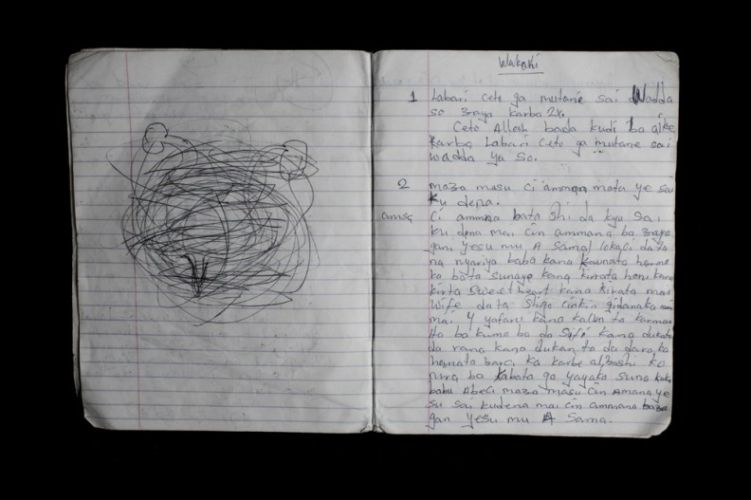 Wakoki
1 Labari ceto ga mutane sai Wadda
so zaya karba 2x.
Ceto Allah bada kudi ba a ke
Karba Labari ceto ga mutane sai
wadda ya so.
2 maza masu ci amman mata ye sai
ku dena.
amana Ci ammana bata shi da kyu sai
ku dena mai cin ammana ba zaya
gan Yesu mu A Sama lokaci data
na nyariya baba kana
ka bata sunaye kana kirata honi kana
kirta sweet heart kana kirata mai
wife data shigo cikin gidanaka
mai 4 yafaru kana
ta ba kume ba da kana dukata
da rana kana dukan ta da dare ka
ka karbe albashi ka
ba kabata ga yayaka suna kuka
babu abeci maza masu cin amana ye
su sai kudena mai cin ammana baza
gan Yesu mu A Sama.